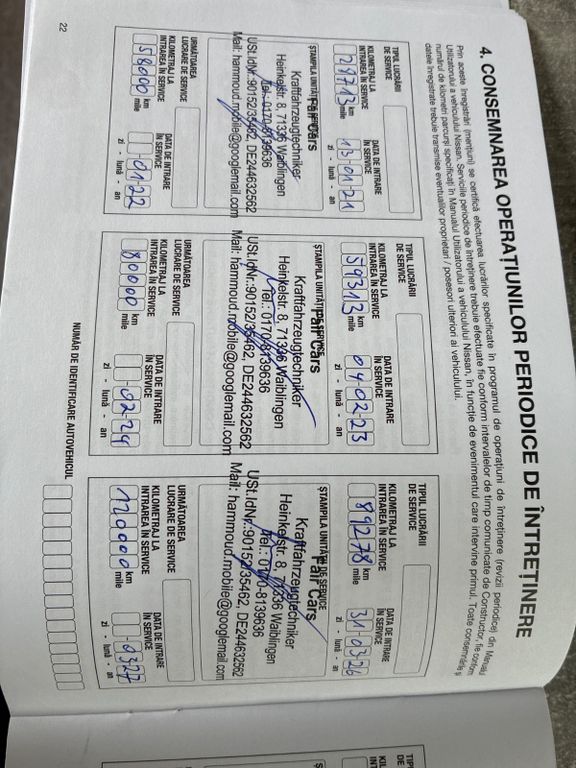 4. CONSEMNAREA OPERAȚIUNILOR PERIODICE DE ÎNTREȚINERE
Prin aceste înregistrări (mențiuni) se certifică efectuarea lucrărilor specificate în programul de operațiuni de întreținere (revizii periodice) din Manualul
Utilizatorului a vehiculului Nissan. Serviciile periodice de întreținere trebuie efectuate fie conform intervalelor de timp comunicate de Constructor, fie conform
numărul de kilometri parcurși specificați în Manualul Utilizatorului a vehiculului Nissan, în funcție de evenimentul care intervine primul. Toate consemnările și
datele înregistrate trebuie transmise eventualilor proprietari / posesori ulteriori ai vehiculului.
TIPUL LUCRĂRII
DE SERVICE
KILOMETRAJ LA
INTRAREA ÎN SERVICE
29713 km
mile
DATA DE INTRARE
ÎN SERVICE
13 01 21
zi - lună - an
ȘTAMPILA UNITĂȚII DE SERVICE
Fair Cars
Kraftfahrzeugtechniker
Heinkelstr. 8, 71336 Waiblingen
Tel.: 0170-8139636
USt.IdNr.:90152/35462, DE244632562
Mail: hammoud.mobile@googlemail.com
URMĂTOAREA
LUCRARE DE SERVICE
KILOMETRAJ LA
INTRAREA ÎN SERVICE
58000 km
mile
DATA DE INTRARE
ÎN SERVICE
01 22
zi - lună - an
TIPUL LUCRĂRII
DE SERVICE
KILOMETRAJ LA
INTRAREA ÎN SERVICE
59313 km
mile
DATA DE INTRARE
ÎN SERVICE
04-02-23
zi - lună - an
ȘTAMPILA UNITĂȚII DE SERVICE
Fair Cars
Kraftfahrzeugtechniker
Heinkelstr. 8, 71336 Waiblingen
Tel.: 0170-8139636
USt.IdNr.:90152/35462, DE244632562
Mail: hammoud.mobile@googlemail.com
URMĂTOAREA
LUCRARE DE SERVICE
KILOMETRAJ LA
INTRAREA ÎN SERVICE
80000 km
mile
DATA DE INTRARE
ÎN SERVICE
02-24
zi - lună - an
TIPUL LUCRĂRII
DE SERVICE
KILOMETRAJ LA
INTRAREA ÎN SERVICE
89278 km
mile
DATA DE INTRARE
ÎN SERVICE
31-03-26
zi - lună - an
ȘTAMPILA UNITĂȚII DE SERVICE
Fair Cars
Kraftfahrzeugtechniker
Heinkelstr. 8, 71336 Waiblingen
Tel.: 0170-8139636
USt.IdNr.:90152/35462, DE244632562
Mail: hammoud.mobile@googlemail.com
URMĂTOAREA
LUCRARE DE SERVICE
KILOMETRAJ LA
INTRAREA ÎN SERVICE
120000 km
mile
DATA DE INTRARE
ÎN SERVICE
03 27
zi - lună - an
NUMĂR DE IDENTIFICARE AUTOVEHICUL
22